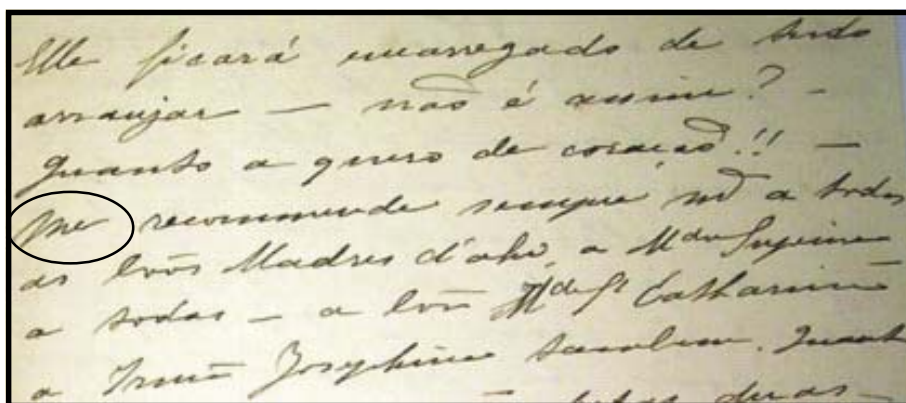 Elle ficará encarregado de tudo
arranjar — não é assim? -
Quanto a quero de coração!! —
Me recommende sempre md a todas
as bôas Madres d'ahi, a Mdre Superiora
a todas — a bôa Mde St Catharina
a Irmã Josephina tambem.
duas -